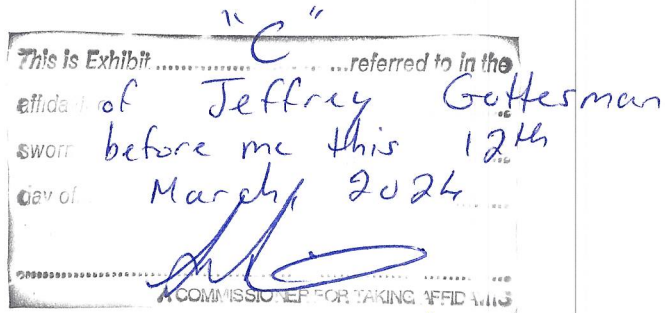 This is Exhibit "C" referred to in the
affidavit of Jeffrey Gottesman
sworn before me this 12th
day of March, 2024
A COMMISSIONER FOR TAKING AFFIDAVITS